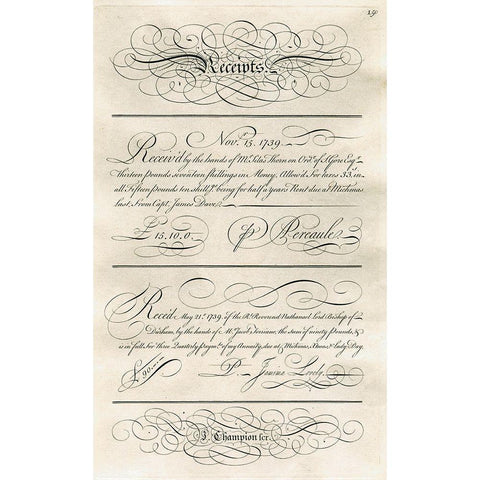 Receipts.
Nov.r 15. 1739
Receiv'd by the hands of Mr. Silas Thorn on Ord.r of Esq.r
Thirteen pounds seventeen shillings in Money, Allow'd for taxes 33s. in
all Fifteen pounds ten shill.s being for half a years Rent due at Mich'mas
last, From Capt. James Dave
£ 15.10.0. P Pereaule
Reced May 21st. 1739, of the Rt. Reverend Nathanael Lord Bishop of
Durham, by the hands of Mr. Jacob the sum of ninety Pounds, &
is in full for Three Quarterly Paym.ts of my Annuity, due at Mich'mas, Xmas, & Lady Day.
£ 90 P. Jemima Lovely
J. Champion scr.